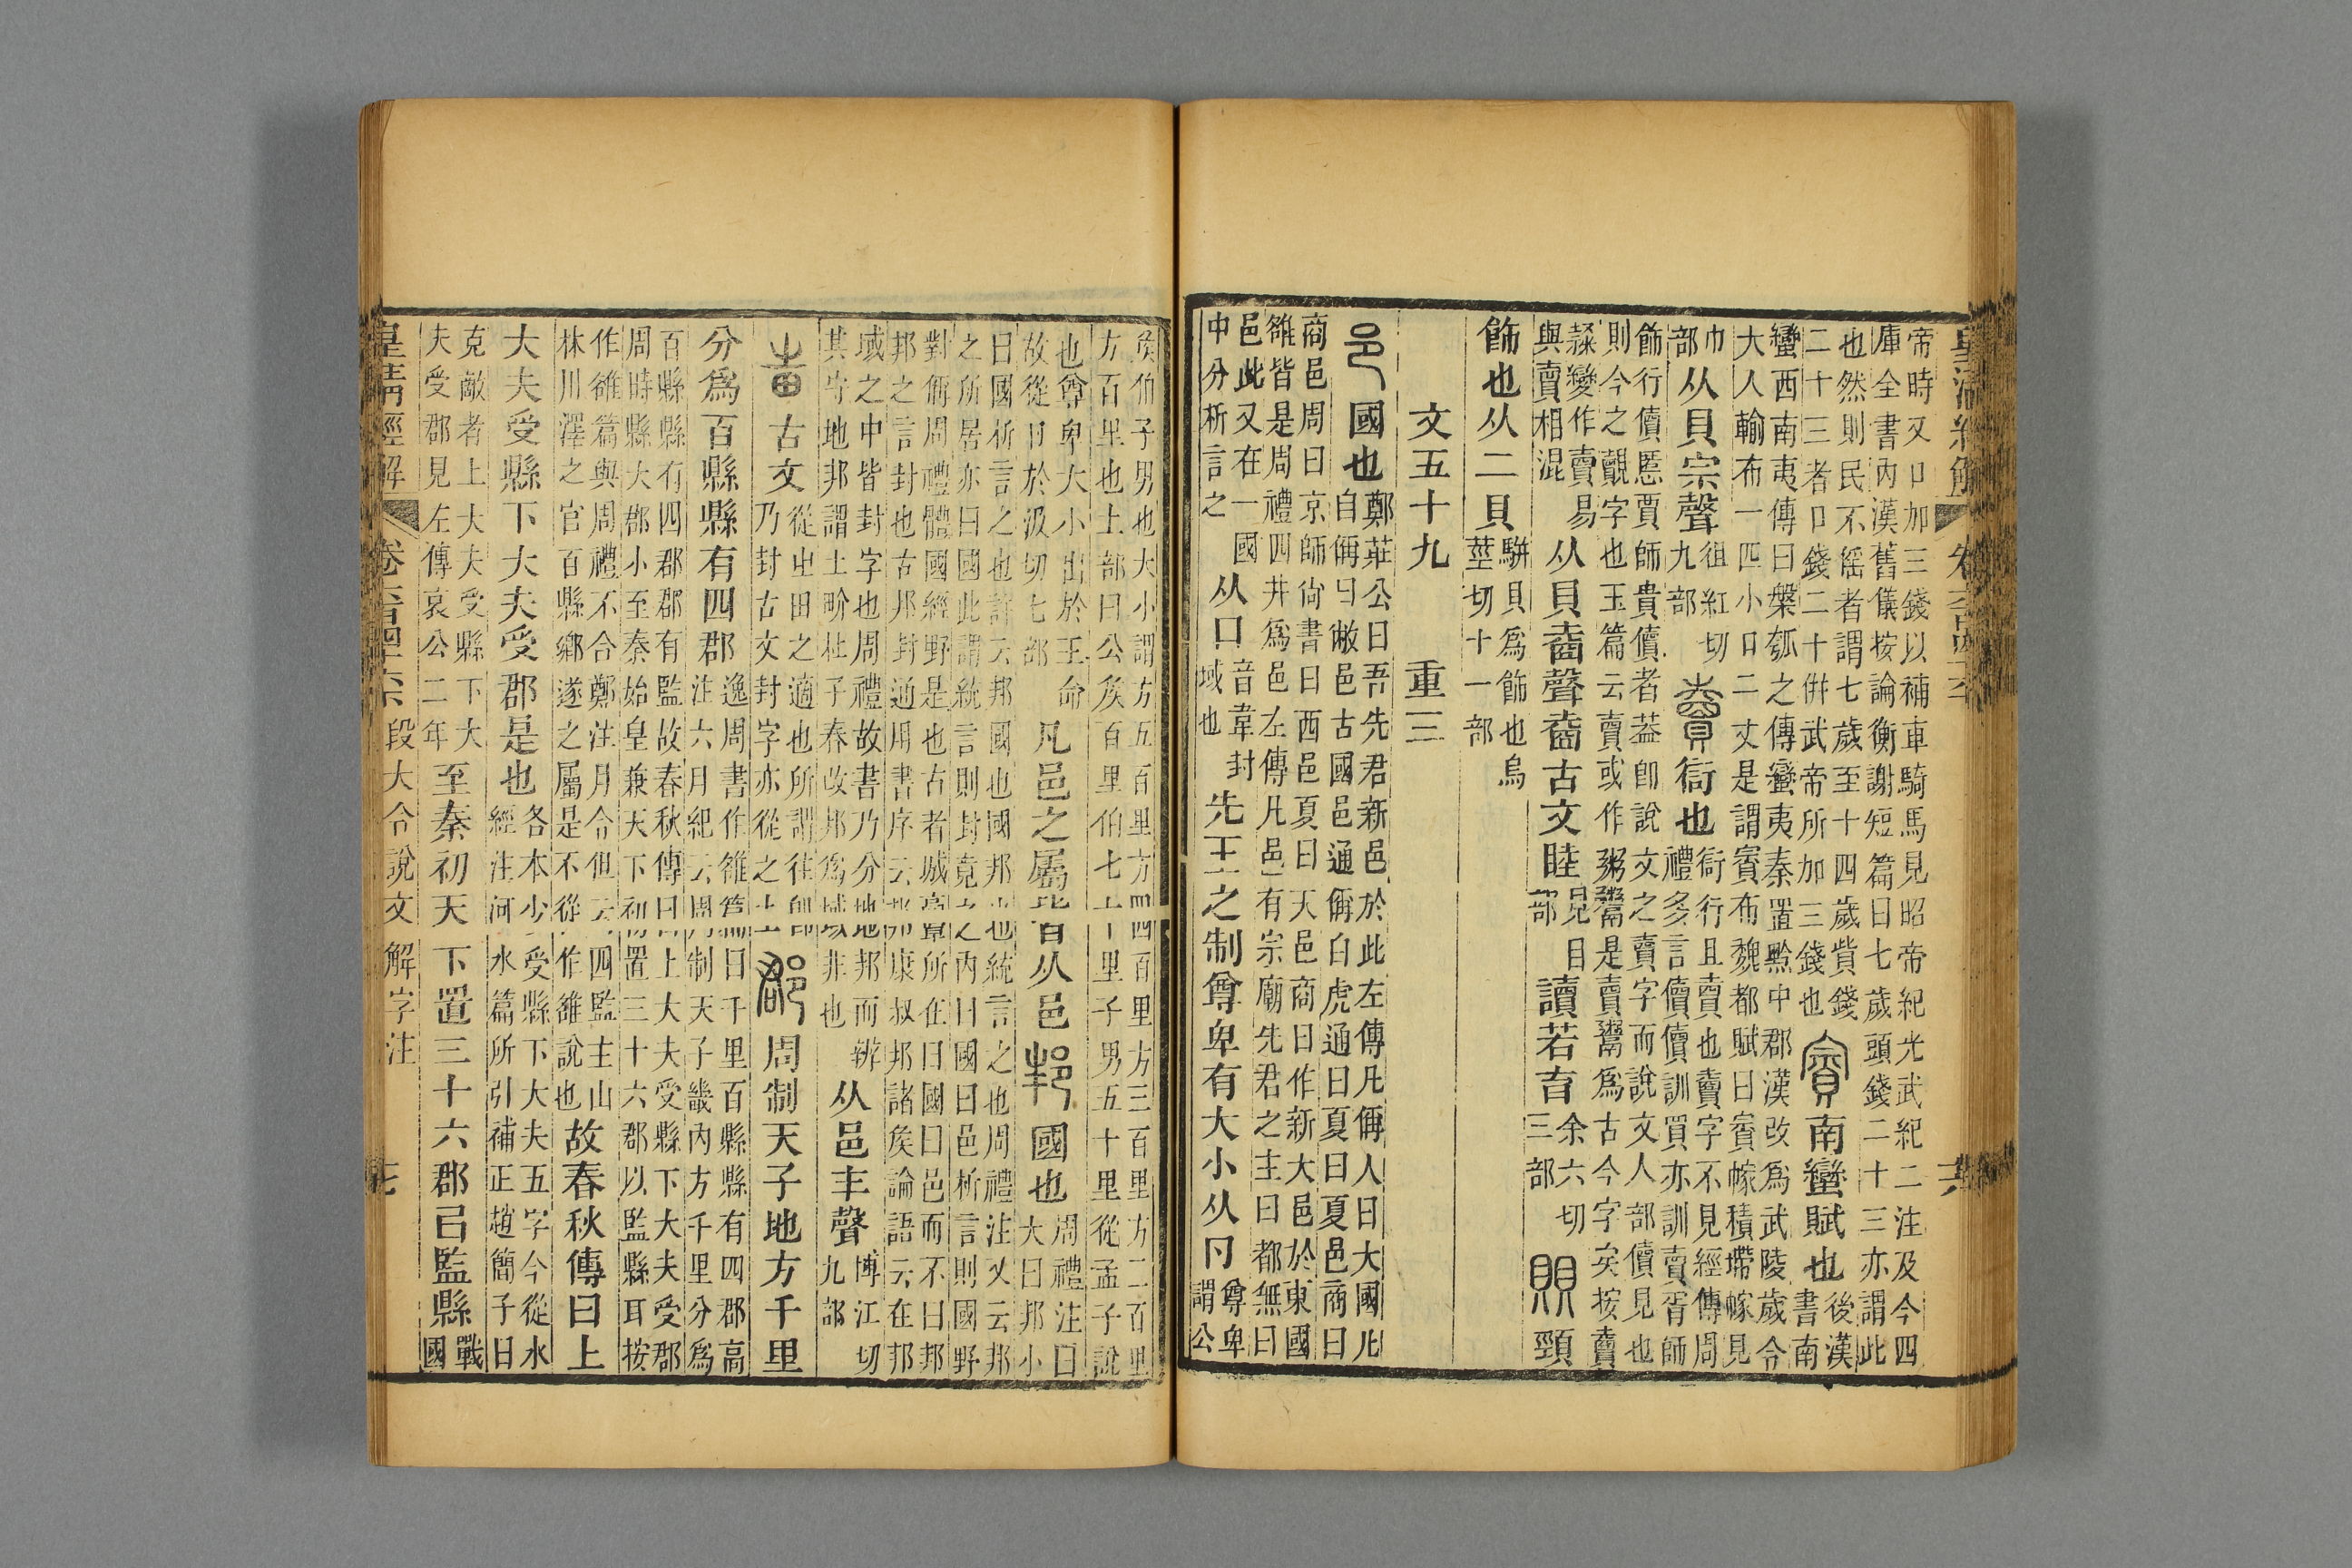 帝時又口加三錢以補車騎馬見昭帝紀光武紀二注及今四
庫全書內漢舊儀按論衡謝短篇曰七歲頭錢二十三亦謂此
也然則民不繇者謂七歲至十四歲貲錢
二十三者口錢二十併武帝所加三錢也
賨南蠻賦也後漢書南
蠻西南夷傳曰槃瓠之傳蠻夷秦置黔中郡漢改爲武陵歲令
大人輸布一匹小口二丈是謂賨布魏都賦曰賨幏積墆幏見
巾部从貝宗聲徂紅切九部
賣衒也衒行且賣也賣字不見經傳周
禮多言儥儥訓買亦訓賣胥師
飾行儥慝賈師貴儥者葢卽說文之賣字而說文人部儥見也
則今之覿字也玉篇云賣或作粥鬻是賣鬻爲古今字矣按賣
隸變作賣易與賣相混从貝𡍬聲𡍬古文睦見目部讀若育余六切三部
賏頸
飾也从二貝駢貝爲飾也烏莖切十一部
文五十九　重三
邑國也鄭莊公曰吾先君新邑於此左傳凡偁人曰大國凡
自偁曰敝邑古國邑通偁白虎通曰夏曰夏邑商曰
商邑周曰京師尙書曰西邑夏曰天邑商曰作新大邑於東國
雒皆是周禮四井爲邑左傳凡邑有宗廟先君之主曰都無曰
邑此又在一國中分析言之从囗音韋封域也先王之制尊卑有大小从卪尊卑謂公
矦伯子男也大小謂方五百里方四百里方三百里方二百里
方百里也土部曰公矦百里伯七十里子男五十里從孟子說
也尊卑大小出於王命
故從卪於汲切七部
凡邑之屬皆从邑
邦國也周禮注曰大曰邦小
曰國析言之也許云邦國也國邦也統言之也周禮注又云邦
之所居亦曰國此謂統言則封竟之內曰國曰邑析言則國野
對偁周禮體國經野是也古者城𩫏所在曰國曰邑而不曰邦
邦之言封也古邦封通用書序云邦康叔邦諸矦論語云在邦
域之中皆封字也周禮故書乃分地邦而辨
其守地邦謂土畍杜子春改邦爲域非也
从邑丰聲博江切九部
古文從㞢田之適也所謂往卽
乃封古文封字亦從之土
郡周制天子地方千里
分爲百縣縣有四郡逸周書作雒篇曰千里百縣縣有四郡高
注六月紀云周制天子畿內方千里分爲
百縣縣有四郡郡有監故春秋傳曰上大夫受縣下大夫受郡
周時縣大郡小至秦始皇兼天下初置三十六郡以監縣耳按
作雒篇與周禮不合鄭注月令但云四監主山
林川澤之官百縣鄉遂之屬是不從作雒說也
故春秋傳曰上
大夫受縣下大夫受郡是也各本少受縣下大夫五字今從水
經注河水篇所引補正趙簡子曰
克敵者上大夫受縣下大
夫受郡見左傳哀公二年
至秦初天下置三十六郡㠯監縣戰國
皇淸經解　卷六百四十六　段大令說文解字注